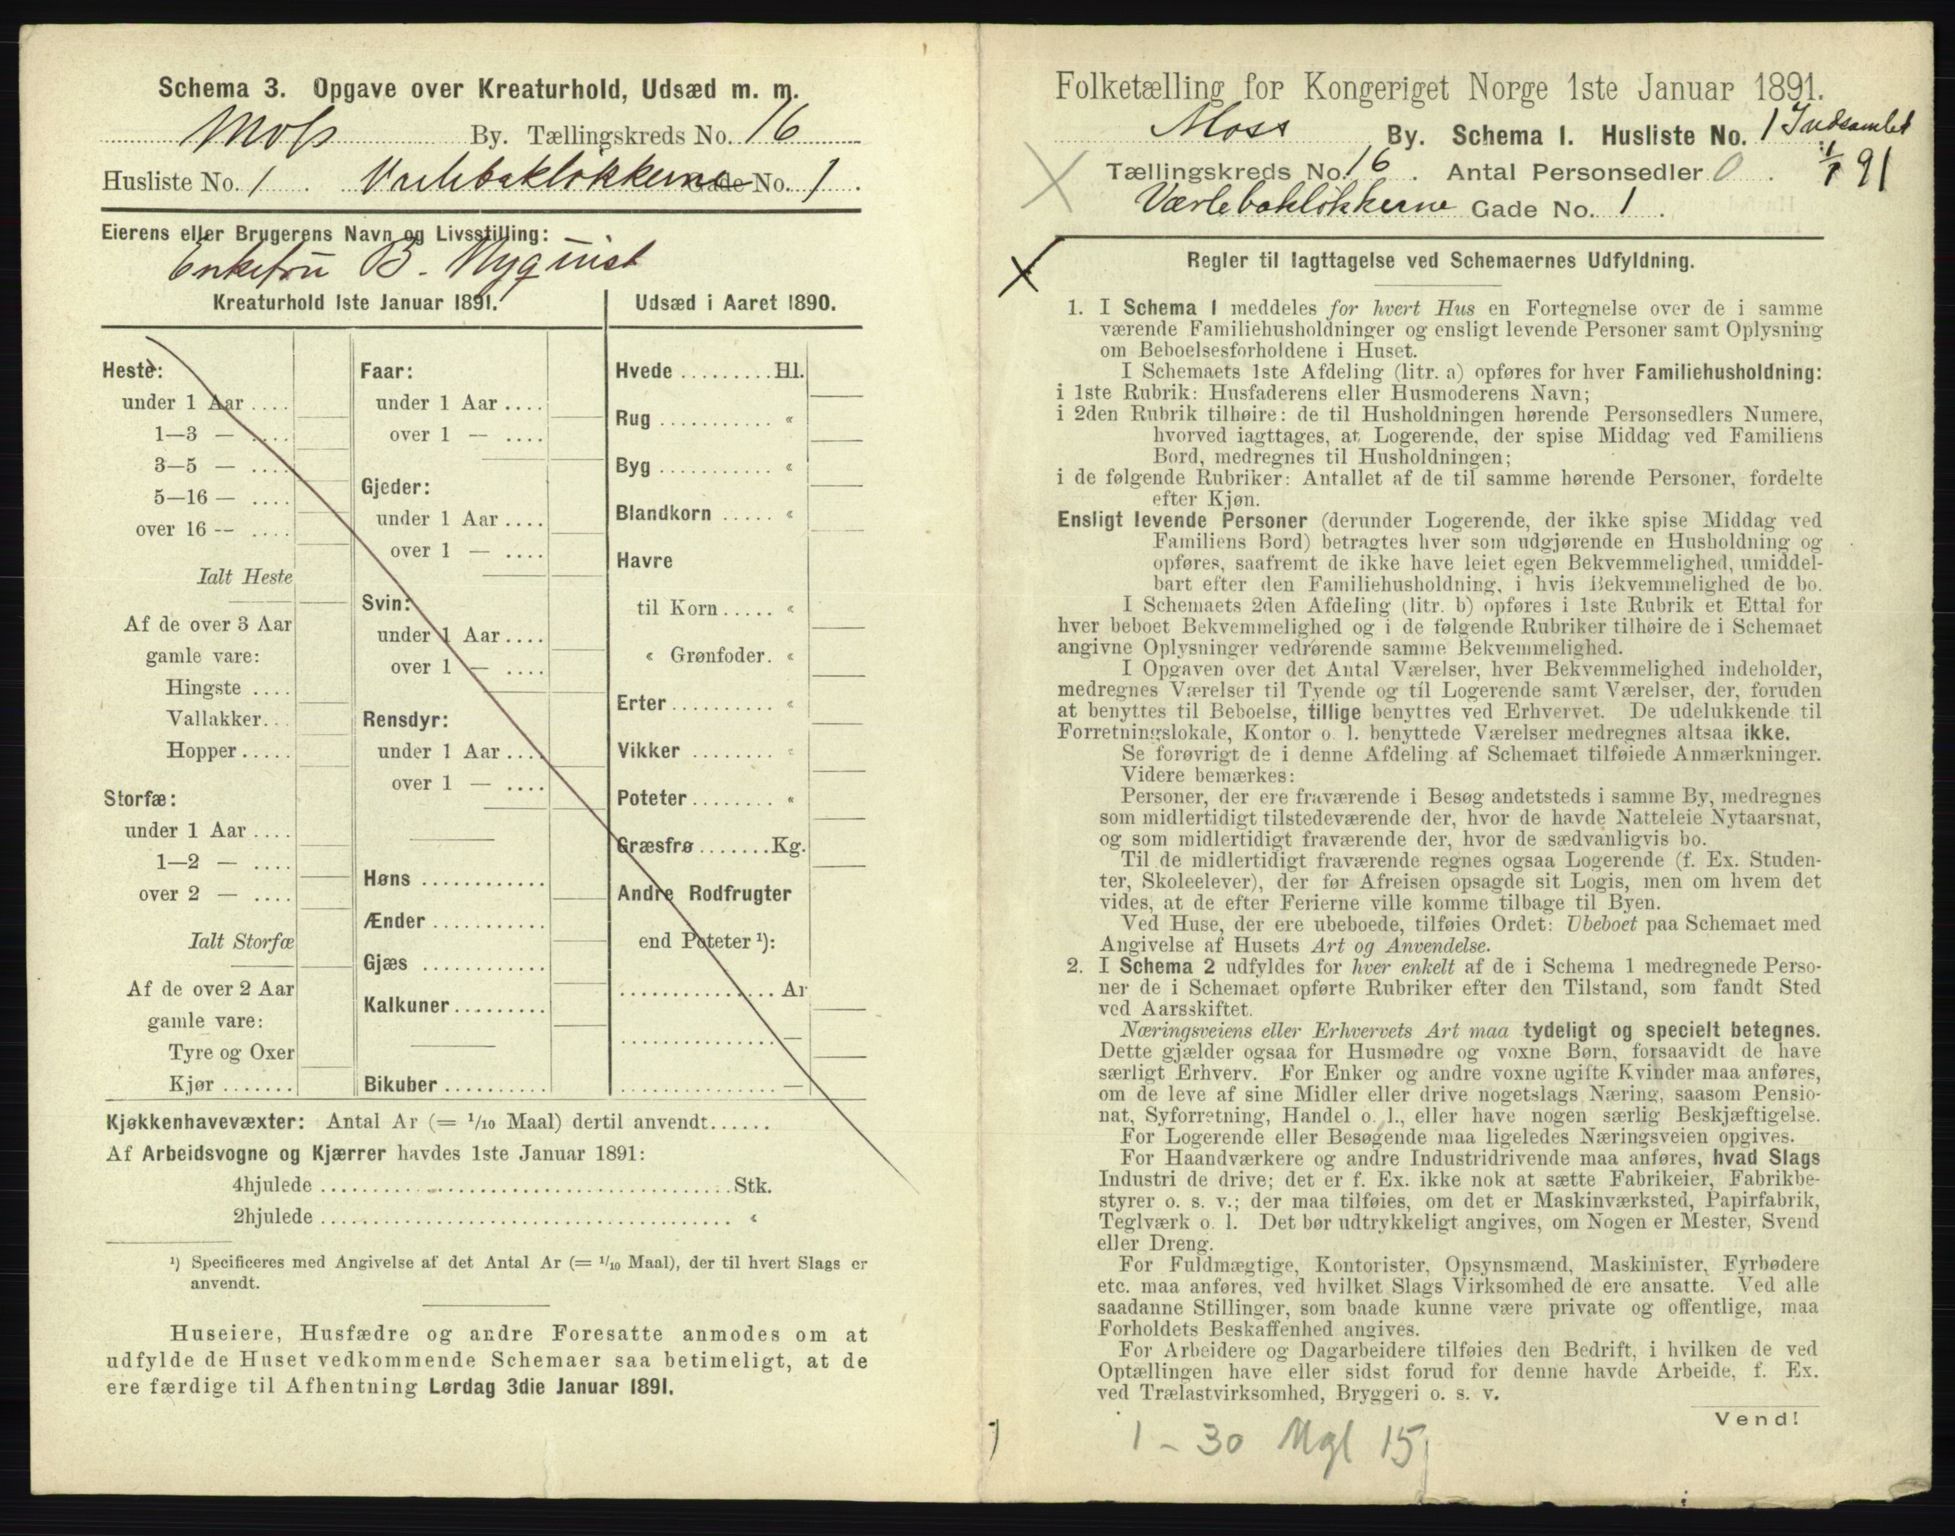 Schema 3. Opgave over Kreaturhold, Udsæd m. m.
Moss By. Tællingskreds No. 16
Husliste No. 1 Værlebakløkkerne Gade No. 1.
Eierens eller Brugerens Navn og Livsstilling:
Enkefru B. Nyquist
Kreaturhold 1ste Januar 1891.
Heste:
under 1 Aar ....
1—3 — ....
3—5 — ....
5—16 — ....
over 16 — ....
Ialt Heste
Af de over 3 Aar
gamle vare:
Hingste ....
Vallakker...
Hopper.....
Storfæ:
under 1 Aar ....
1—2 — ....
over 2 — ....
Ialt Storfæ
Af de over 2 Aar
gamle vare:
Tyre og Oxer
Kjør .......
Faar:
under 1 Aar ....
over 1 — ....
Gjeder:
under 1 Aar ....
over 1 — ....
Svin:
under 1 Aar ....
over 1 — ....
Rensdyr:
under 1 Aar ....
over 1 — ....
Høns ............
Ænder ...........
Gjæs ............
Kalkuner.........
Bikuber ..........
Udsæd i Aaret 1890.
Hvede .........Hl.
Rug ........... «
Byg ........... «
Blandkorn ..... «
Havre
til Korn ..... «
« Grønfoder. «
Erter.......... «
Vikker ........ «
Poteter........ «
Græsfrø .......Kg.
Andre Rodfrugter
end Poteter ¹):
............... Ar
............... —
............... —
Kjøkkenhavevæxter: Antal Ar (= 1/10 Maal) dertil anvendt......
Af Arbeidsvogne og Kjærrer havdes 1ste Januar 1891:
4hjulede ........................................Stk.
2hjulede ........................................ «
¹) Specificeres med Angivelse af det Antal Ar (= 1/10 Maal), der til hvert Slags er
anvendt.
Huseiere, Husfædre og andre Foresatte anmodes om at
udfylde de Huset vedkommende Schemaer saa betimeligt, at de
ere færdige til Afhentning Lørdag 3die Januar 1891.
Folketælling for Kongeriget Norge 1ste Januar 1891.
Moss By. Schema I. Husliste No. 1 Indsamlet
Tællingskreds No. 16. Antal Personsedler 0. 1/1 91
Værlebakløkkerne Gade No. 1.
Regler til Iagttagelse ved Schemaernes Udfyldning.
1. I Schema 1 meddeles for hvert Hus en Fortegnelse over de i samme
værende Familiehusholdninger og ensligt levende Personer samt Oplysning
om Beboelsesforholdene i Huset.
I Schemaets 1ste Afdeling (litr. a) opføres for hver Familiehusholdning:
i 1ste Rubrik: Husfaderens eller Husmoderens Navn;
i 2den Rubrik tilhøire: de til Husholdningen hørende Personsedlers Numere,
hvorved iagttages, at Logerende, der spise Middag ved Familiens
Bord, medregnes til Husholdningen;
i de følgende Rubriker: Antallet af de til samme hørende Personer, fordelte
efter Kjøn.
Ensligt levende Personer (derunder Logerende, der ikke spise Middag ved
Familiens Bord) betragtes hver som udgjørende en Husholdning og
opføres, saafremt de ikke have leiet egen Bekvemmelighed, umiddel-
bart efter den Familiehusholdning, i hvis Bekvemmelighed de bo.
I Schemaets 2den Afdeling (litr. b) opføres i 1ste Rubrik et Ettal for
hver beboet Bekvemmelighed og i de følgende Rubriker tilhøire de i Schemaet
angivne Oplysninger vedrørende samme Bekvemmelighed.
I Opgaven over det Antal Værelser, hver Bekvemmelighed indeholder,
medregnes Værelser til Tyende og til Logerende samt Værelser, der, foruden
at benyttes til Beboelse, tillige benyttes ved Erhvervet. De udelukkende til
Forretningslokale, Kontor o. l. benyttede Værelser medregnes altsaa ikke.
Se forøvrigt de i denne Afdeling af Schemaet tilføiede Anmærkninger.
Videre bemærkes:
Personer, der ere fraværende i Besøg andetsteds i samme By, medregnes
som midlertidigt tilstedeværende der, hvor de havde Natteleie Nytaarsnat,
og som midlertidigt fraværende der, hvor de sædvanligvis bo.
Til de midlertidigt fraværende regnes ogsaa Logerende (f. Ex. Studen-
ter, Skoleelever), der før Afreisen opsagde sit Logis, men om hvem det
vides, at de efter Ferierne ville komme tilbage til Byen.
Ved Huse, der ere ubeboede, tilføies Ordet: Ubeboet paa Schemaet med
Angivelse af Husets Art og Anvendelse.
2. I Schema 2 udfyldes for hver enkelt af de i Schema 1 medregnede Perso-
ner de i Schemaet opførte Rubriker efter den Tilstand, som fandt Sted
ved Aarsskiftet.
Næringsveiens eller Erhvervets Art maa tydeligt og specielt betegnes.
Dette gjælder ogsaa for Husmødre og voxne Børn, forsaavidt de have
særligt Erhverv. For Enker og andre voxne ugifte Kvinder maa anføres,
om de leve af sine Midler eller drive nogetslags Næring, saasom Pensio-
nat, Syforretning, Handel o. l., eller have nogen særlig Beskjæftigelse.
For Logerende eller Besøgende maa ligeledes Næringsveien opgives.
For Haandværkere og andre Industridrivende maa anføres, hvad Slags
Industri de drive; det er f. Ex. ikke nok at sætte Fabrikeier, Fabrikbe-
styrer o. s. v.; der maa tilføies, om det er Maskinværksted, Papirfabrik,
Teglværk o. l. Det bør udtrykkeligt angives, om Nogen er Mester, Svend
eller Dreng.
For Fuldmægtige, Kontorister, Opsynsmænd, Maskinister, Fyrbødere
etc. maa anføres, ved hvilket Slags Virksomhed de ere ansatte. Ved alle
saadanne Stillinger, som baade kunne være private og offentlige, maa
Forholdets Beskaffenhed angives.
For Arbeidere og Dagarbeidere tilføies den Bedrift, i hvilken de ved
Optællingen have eller sidst forud for denne havde Arbeide, f. Ex.
ved Trælastvirksomhed, Bryggeri o. s. v.
Vend!
1 - 30 Mgl 15